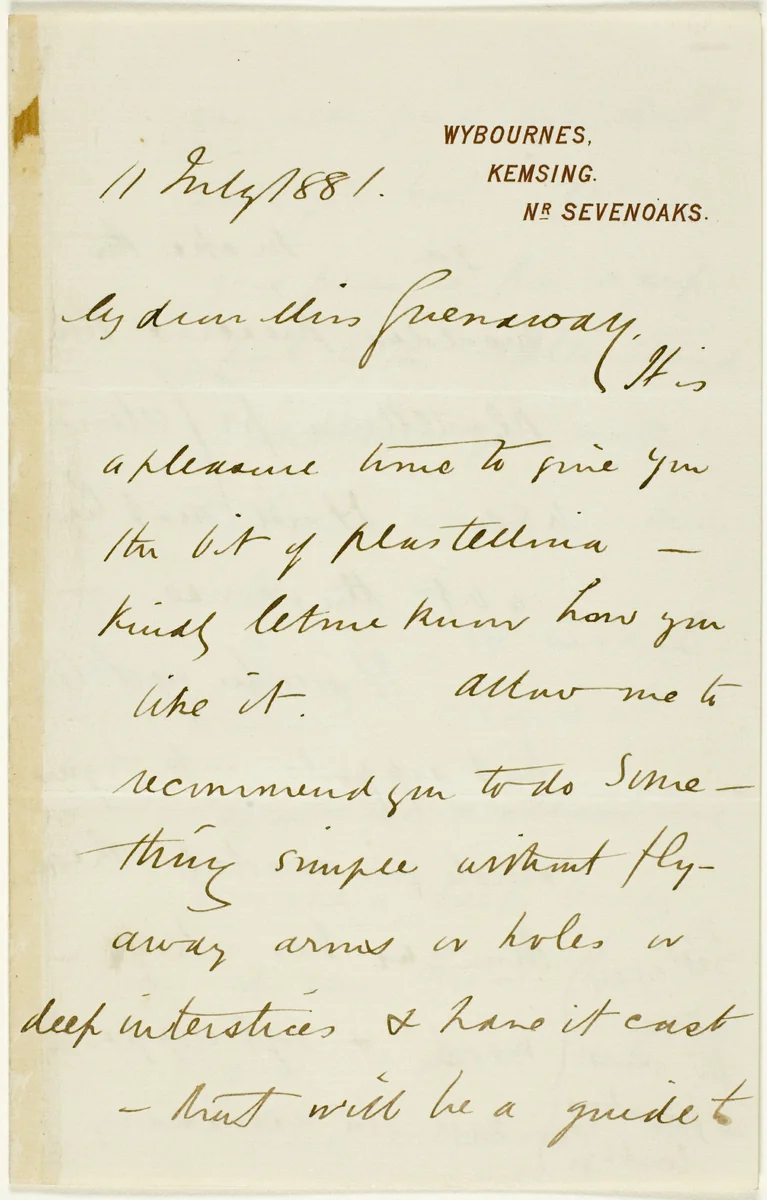 WYBOURNES,
KEMSING.
NR SEVENOAKS.
11 July 1881.
My dear Miss Greenaway,
It is
a pleasure to me to give you
the bit of plastellina —
Kindly let me know how you
like it. Allow me to
recommend you to do Some—
thing simple without fly—
away arms or holes or
deep interstices & have it cast
— that will be a guide to